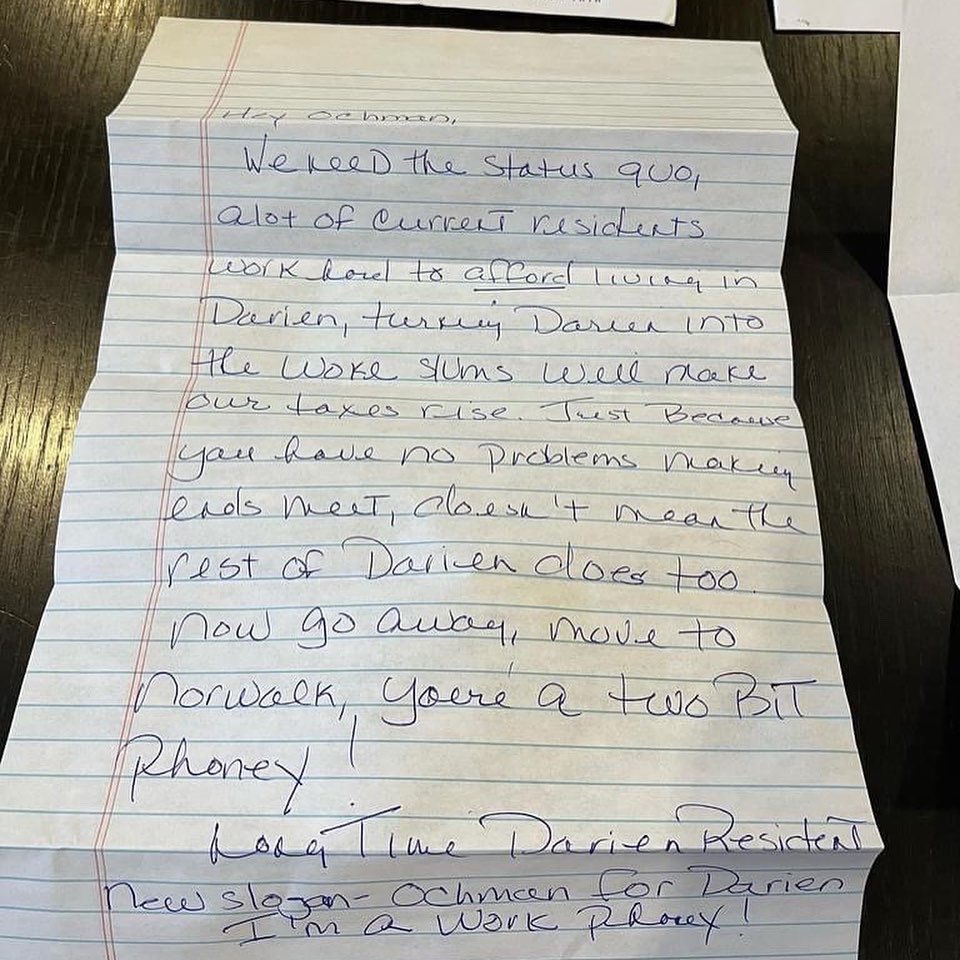 Hey Ochman,
We need the status quo,
alot of current residents
work hard to afford living in
Darien, turning Darien into
the woke slums will make
our taxes rise. Just Because
you have no problems making
ends meet, doesn't mean the
rest of Darien does too.
now go away, move to
Norwalk, you're a two BIT
Phoney!
Long Time Darien Resident
New slogan - Ochman for Darien
I'm a Work Phoney!